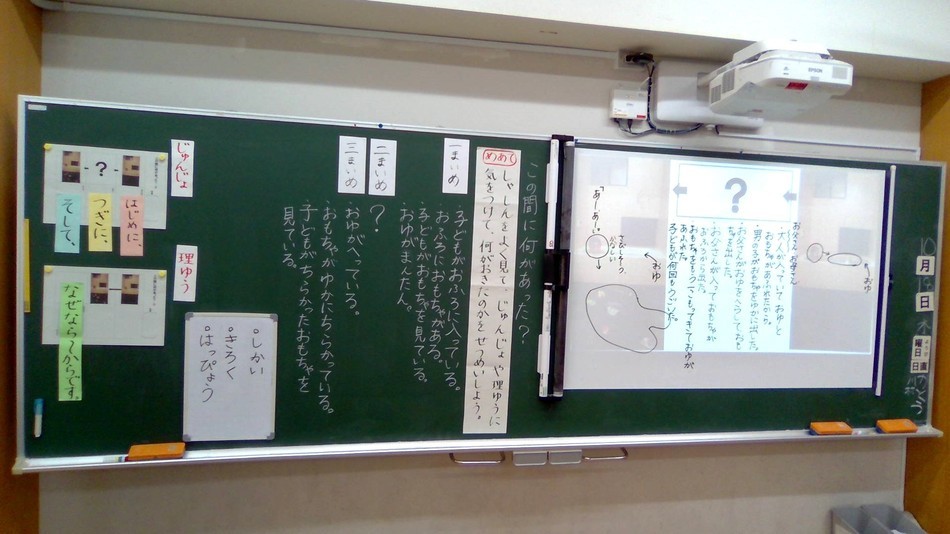 10月13日
木曜日
日直
EPSON
?
お父さん お母さん
・おもちゃがあふれたから。
男の子がおもちゃをゆかに出した。
ちゃを出した。
おふろから出る。
・お父さんが入って、おもちゃが
あふれた。
子どもが何回もうごいた。
おゆ
おゆ
あーあー。
この間に何があった?
めあて
しゃしんをよく見て、じゅんじょや理ゆうに
気をつけて、何がおきたのかをせつめいしよう。
一まいめ
・子どもがおふろに入っている。
・おふろにおもちゃがある。
・子どもがおもちゃを見ている。
・おゆがまんたん。
二まいめ
?
三まいめ
・おゆがへっている。
・おもちゃがゆかにちらかっている。
・子どもがちらかったおもちゃを
見ている。
じゅんじょ
?
はじめに、
つぎに、
そして、
理ゆう
なぜなら〜からです。
・しかい
・きろく
・はっぴょう